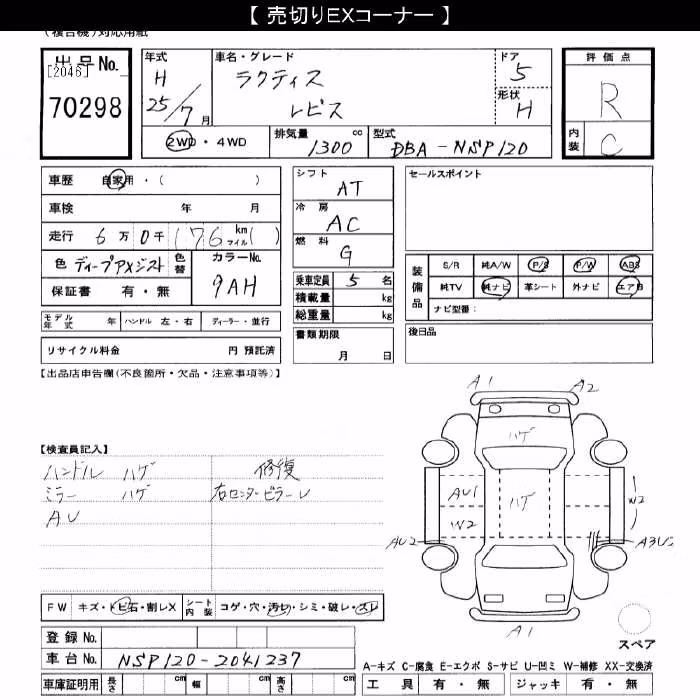 【 売切りEXコーナー 】
(複合機)対応用紙
出品No. [2046] 70298
年式 H 25/7月
車名・グレード ラクティス レピス
ドア 5
形状 H
2WD・4WD
排気量 1300 cc
型式 DBA-NSP120
評価点 R
内装 C
車歴 自家用・( )
車検 年 月
走行 6万0千176 km マイル( )
色 ディープアメジスト 色替
カラーNo. 9AH
保証書 有・無
モデル年式 年 ハンドル 左・右 ディーラー・並行
リサイクル料金 円 預託済
シフト AT
冷房 AC
燃料 G
乗車定員 5 名
積載量 kg
総重量 kg
書類期限 月 日
セールスポイント
装備品 S/R 純A/W P/S P/W ABS
純TV 純ナビ 革シート 外ナビ エアB
ナビ型番:
後日品
【出品店申告欄(不良箇所・欠品・注意事項等)】
【検査員記入】
ハンドル ハゲ 修復
ミラー ハゲ 右センターピラーU
AU
A1 A2
ハゲ
AU1 ハゲ W2
W2
AU2 A3U2
A1
スペア
FW キズ・トビ石・割レX シート内装 コゲ・穴・汚レ・シミ・破レ・スレ
登録No.
車台No. NSP120-2041237
車庫証明用 長さ cm 幅 cm 高さ cm
A-キズ C-腐食 E-エクボ S-サビ U-凹ミ W-補修 XX-交換済
工具 有・無 ジャッキ 有・無